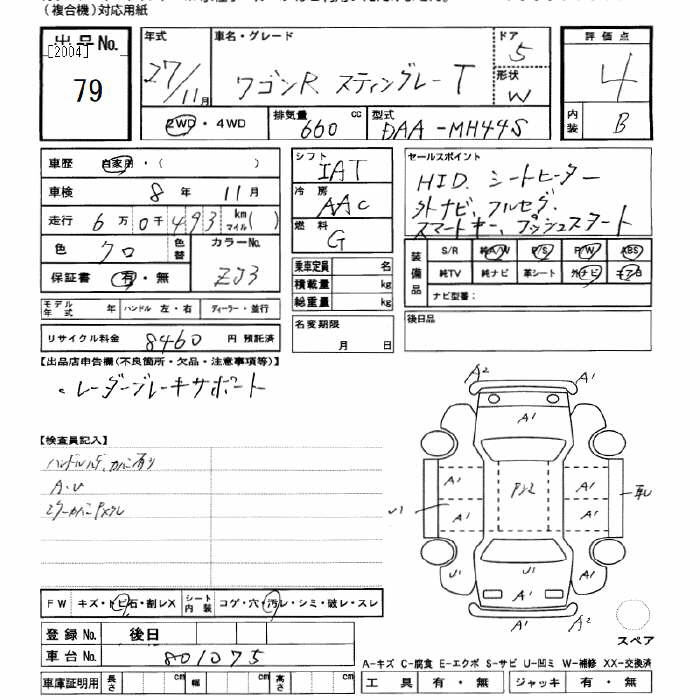 (複合機)対応用紙
出品No.
[2004]
79
年式
27/11月
車名・グレード
ワゴンR スティングレー T
ドア
5
形状
W
評価点
4
内装
B
2WD・4WD
排気量
660 cc
型式
DAA-MH44S
車歴 自家用・( )
車検 8年 11月
走行 6万0千493 km マイル ( )
色 クロ
色替
カラーNo.
ZJ3
保証書 有・無
シフト
IAT
冷房
AAC
燃料
G
乗車定員 名
積載量 kg
総重量 kg
セールスポイント
HID. シートヒーター
外ナビ、フルセグ、
スマートキー、プッシュスタート
装備品
S/R 純A/W P/S P/W ABS
純TV 純ナビ 革シート 外ナビ エアB
ナビ型番:
モデル年式 年 ハンドル 左・右 ディーラー・並行
リサイクル料金 8460 円 預託済
名変期限
月 日
後日品
【出品店申告欄(不良箇所・欠品・注意事項等)】
・レーダーブレーキサポート
【検査員記入】
A・U
A2
A1
A1
A1
A1
P22
A1
A1
A1
U1
U1
A1
A1
A1
A2
FW キズ・トビ石・割レX シート内装 コゲ・穴・汚レ・シミ・破レ・スレ
登録No. 後日
車台No. 801075
スペア
A-キズ C-腐食 E-エクボ S-サビ U-凹ミ W-補修 XX-交換済
車庫証明用 長さ cm 幅 cm 高さ cm
工具 有・無 ジャッキ 有・無